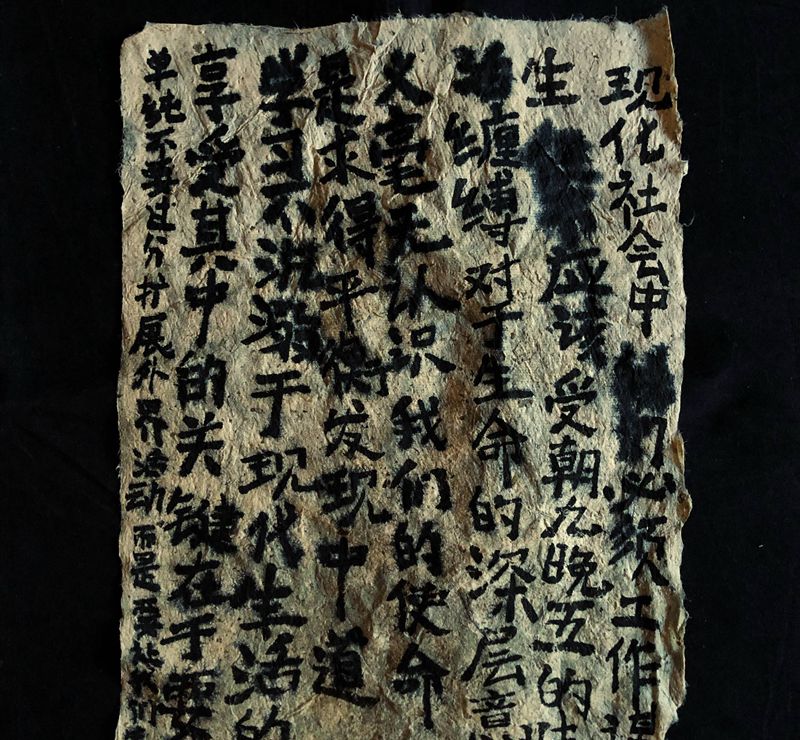 现化社会中们必须工作
生应该受朝九晚五的
缠缚对于生命的深层意
义毫无认识我们的使命
是求得平衡发现中道
学习不沉溺于现代生活的
享受其中的关键在于要
单纯不要过分扩展外界活动而是要我们